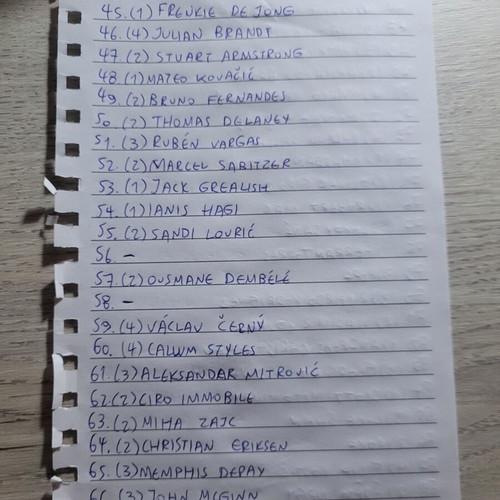 45. (1) FRENKIE DE JONG
46. (4) JULIAN BRANDT
47. (2) STUART ARMSTRONG
48. (1) MATEO KOVAČIĆ
49. (2) BRUNO FERNANDES
50. (2) THOMAS DELANEY
51. (3) RUBÉN VARGAS
52. (2) MARCEL SABITZER
53. (1) JACK GREALISH
54. (1) IANIS HAGI
55. (2) SANDI LOVRIĆ
56. –
57. (2) OUSMANE DEMBÉLÉ
58. –
59. (4) VÁCLAV ČERNÝ
60. (4) CALLUM STYLES
61. (3) ALEKSANDAR MITROVIĆ
62. (2) CIRO IMMOBILE
63. (2) MIHA ZAJC
64. (2) CHRISTIAN ERIKSEN
65. (3) MEMPHIS DEPAY
66. (3) JOHN MCGINN